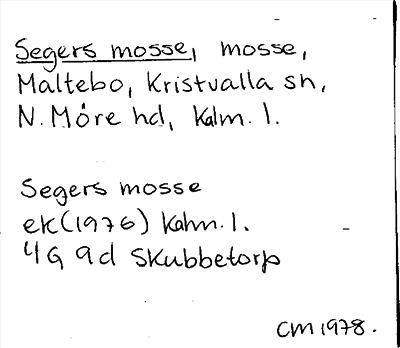 Segers mosse, mosse,
Maltebo, Kristvalla sn,
N. Möre hd, Kalm. l.
Segers mosse
ek (1976) Kalm. l.
4G 9d Skubbetorp
CM 1978.